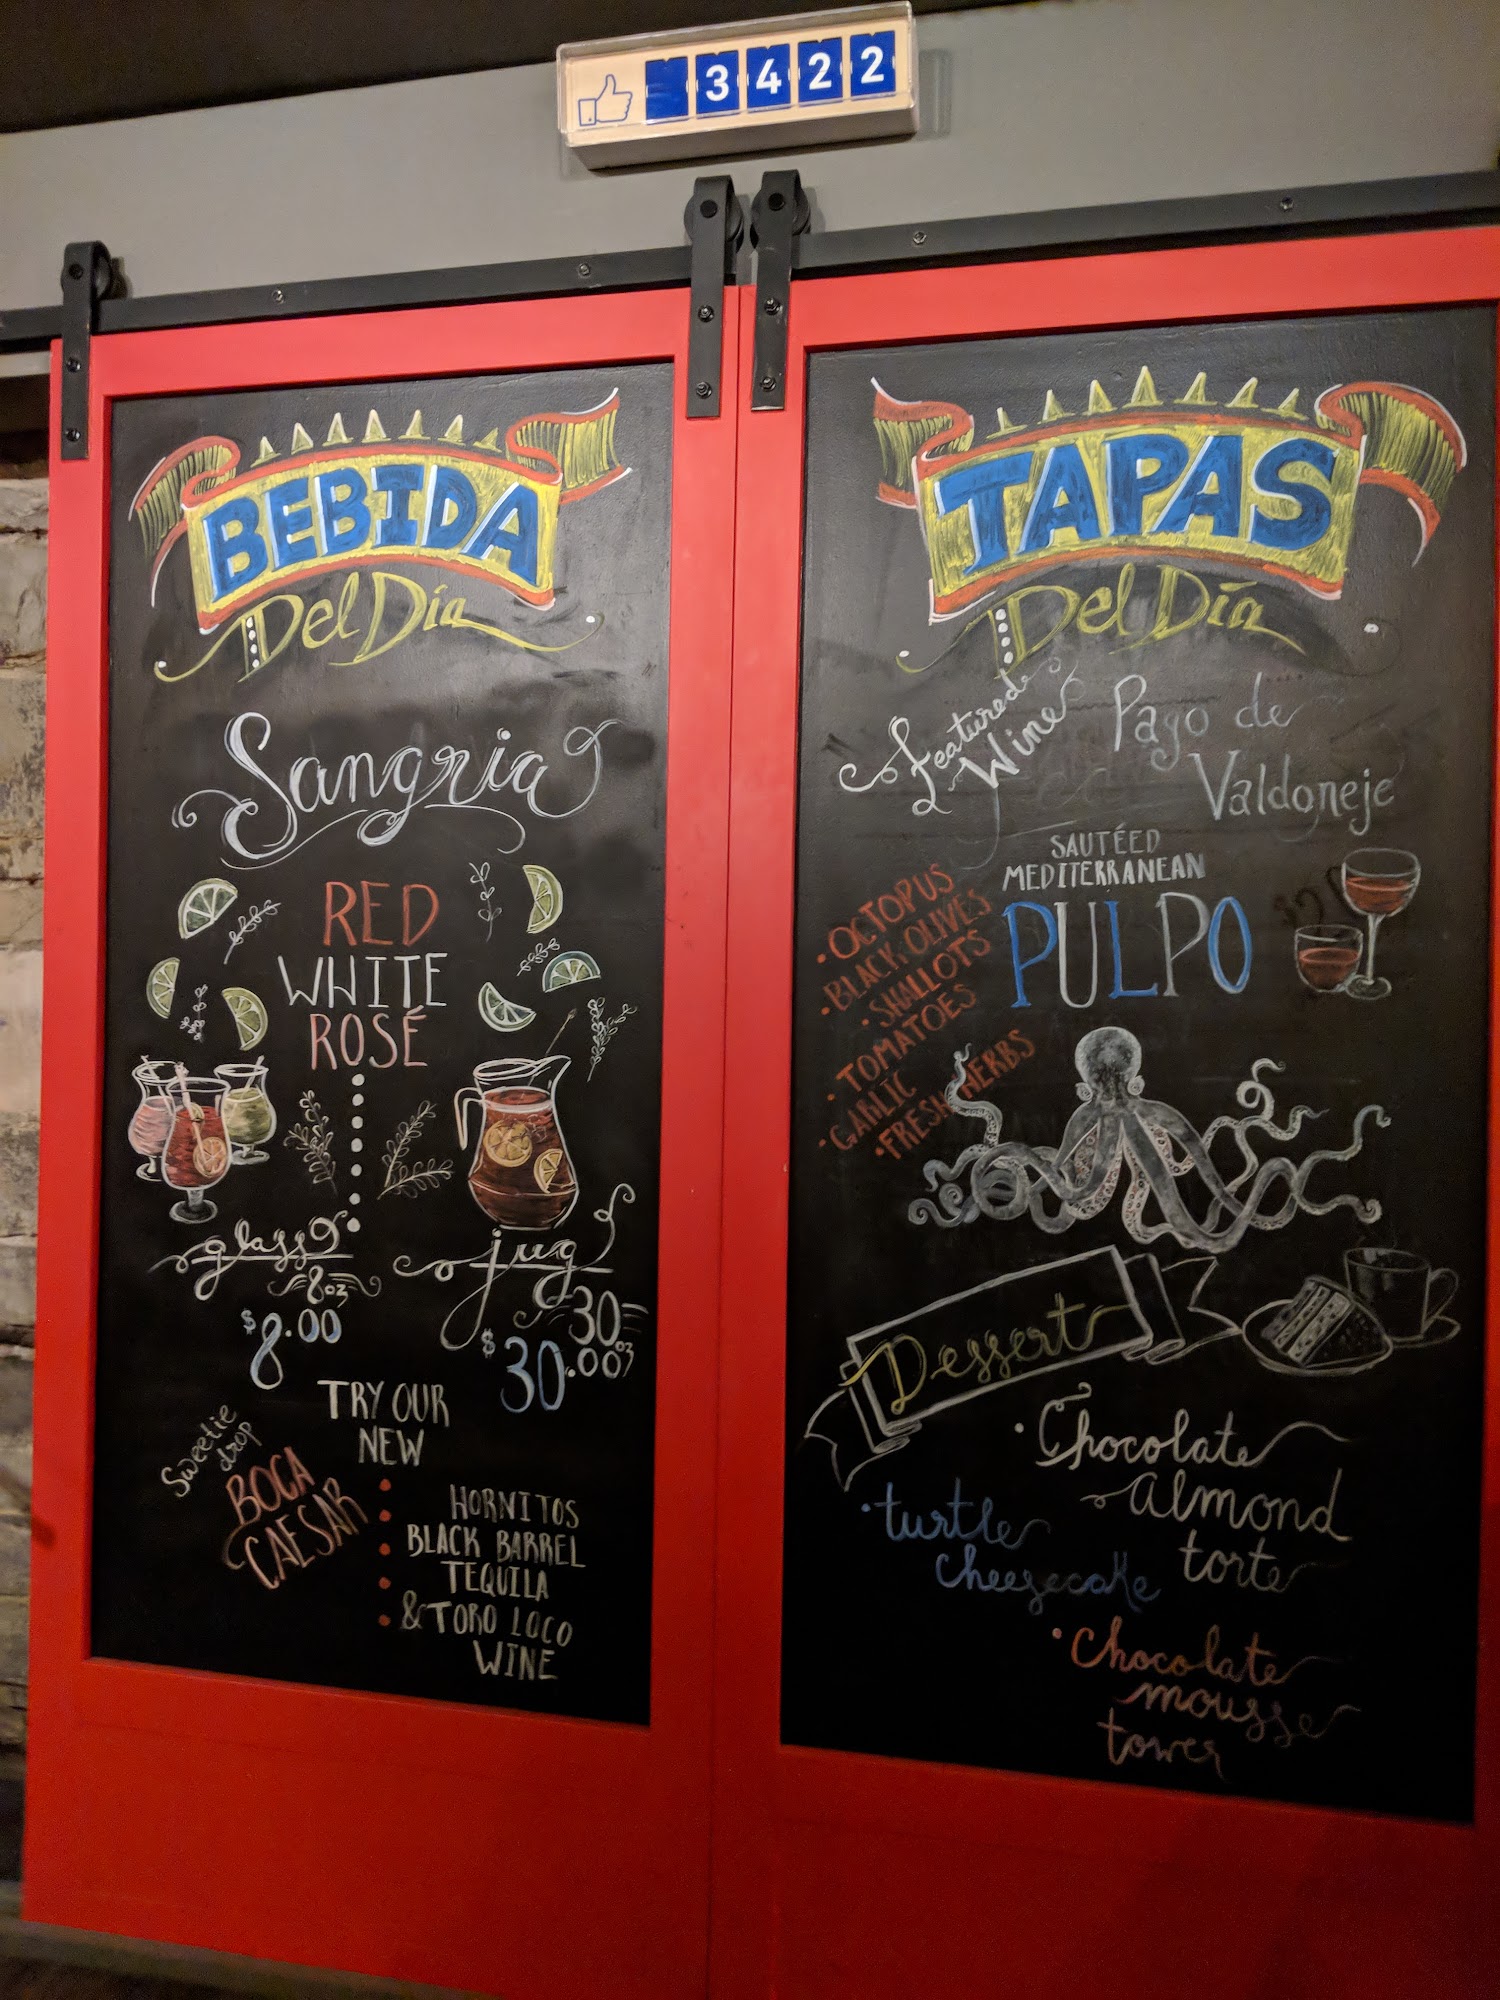 3422
BEBIDA
Del Día
Sangria
RED
WHITE
ROSÉ
glass
8oz
$8.00
jug
30oz
$30.00
TRY OUR
NEW
Sweetie
drop
BOCA
CAESAR
HORNITOS
BLACK BARREL
TEQUILA
& TORO LOCO
WINE
TAPAS
Del Día
Featured
Wine
Pago de
Valdoneje
SAUTÉED
MEDITERRANEAN
PULPO
• OCTOPUS
• BLACK OLIVES
• SHALLOTS
• TOMATOES
• GARLIC
• FRESH HERBS
Dessert
• Chocolate
almond
torte
• turtle
cheesecake
• Chocolate
mousse
tower